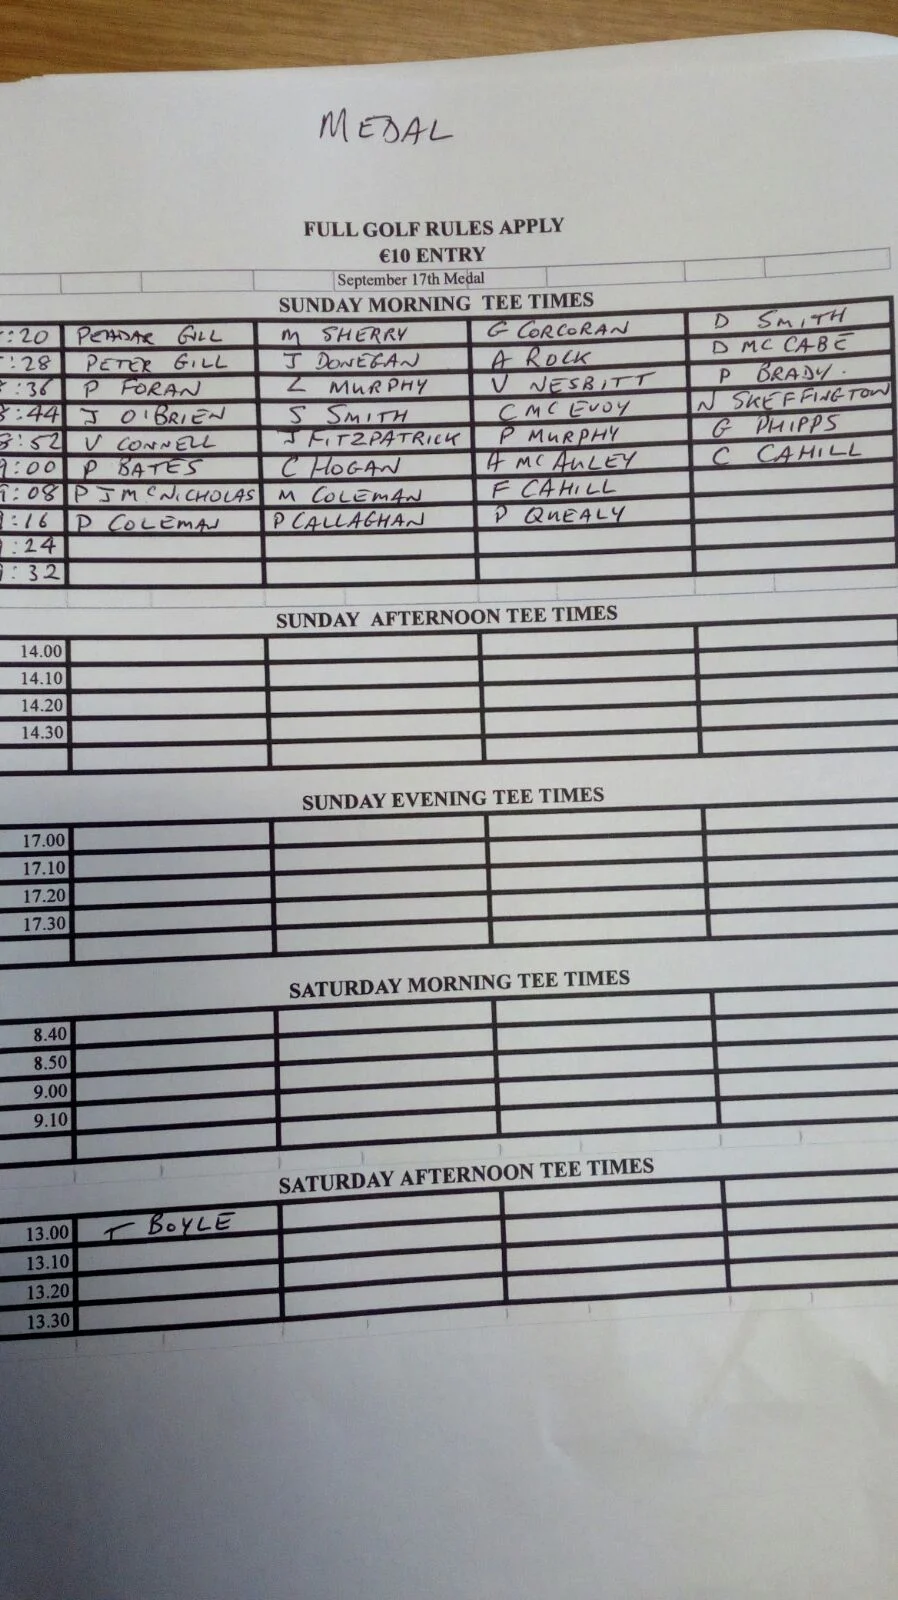 MEDAL
FULL GOLF RULES APPLY
€10 ENTRY
September 17th Medal
SUNDAY MORNING TEE TIMES
:20 PEADAR GILL M SHERRY G CORCORAN D SMITH
:28 PETER GILL J DONEGAN A ROCK D MC CABE
:36 P FORAN L MURPHY V NESBITT P BRADY.
8:44 J O'BRIEN S SMITH C MC EVOY N SKEFFINGTON
8:52 V CONNELL J FITZPATRICK P MURPHY G PHIPPS
9:00 P BATES C HOGAN A MC AULEY C CAHILL
9:08 P J MCNICHOLAS M COLEMAN F CAHILL
9:16 D COLEMAN P CALLAGHAN P QUEALY
:24
:32
SUNDAY AFTERNOON TEE TIMES
14.00
14.10
14.20
14.30
SUNDAY EVENING TEE TIMES
17.00
17.10
17.20
17.30
SATURDAY MORNING TEE TIMES
8.40
8.50
9.00
9.10
SATURDAY AFTERNOON TEE TIMES
13.00 T BOYLE
13.10
13.20
13.30